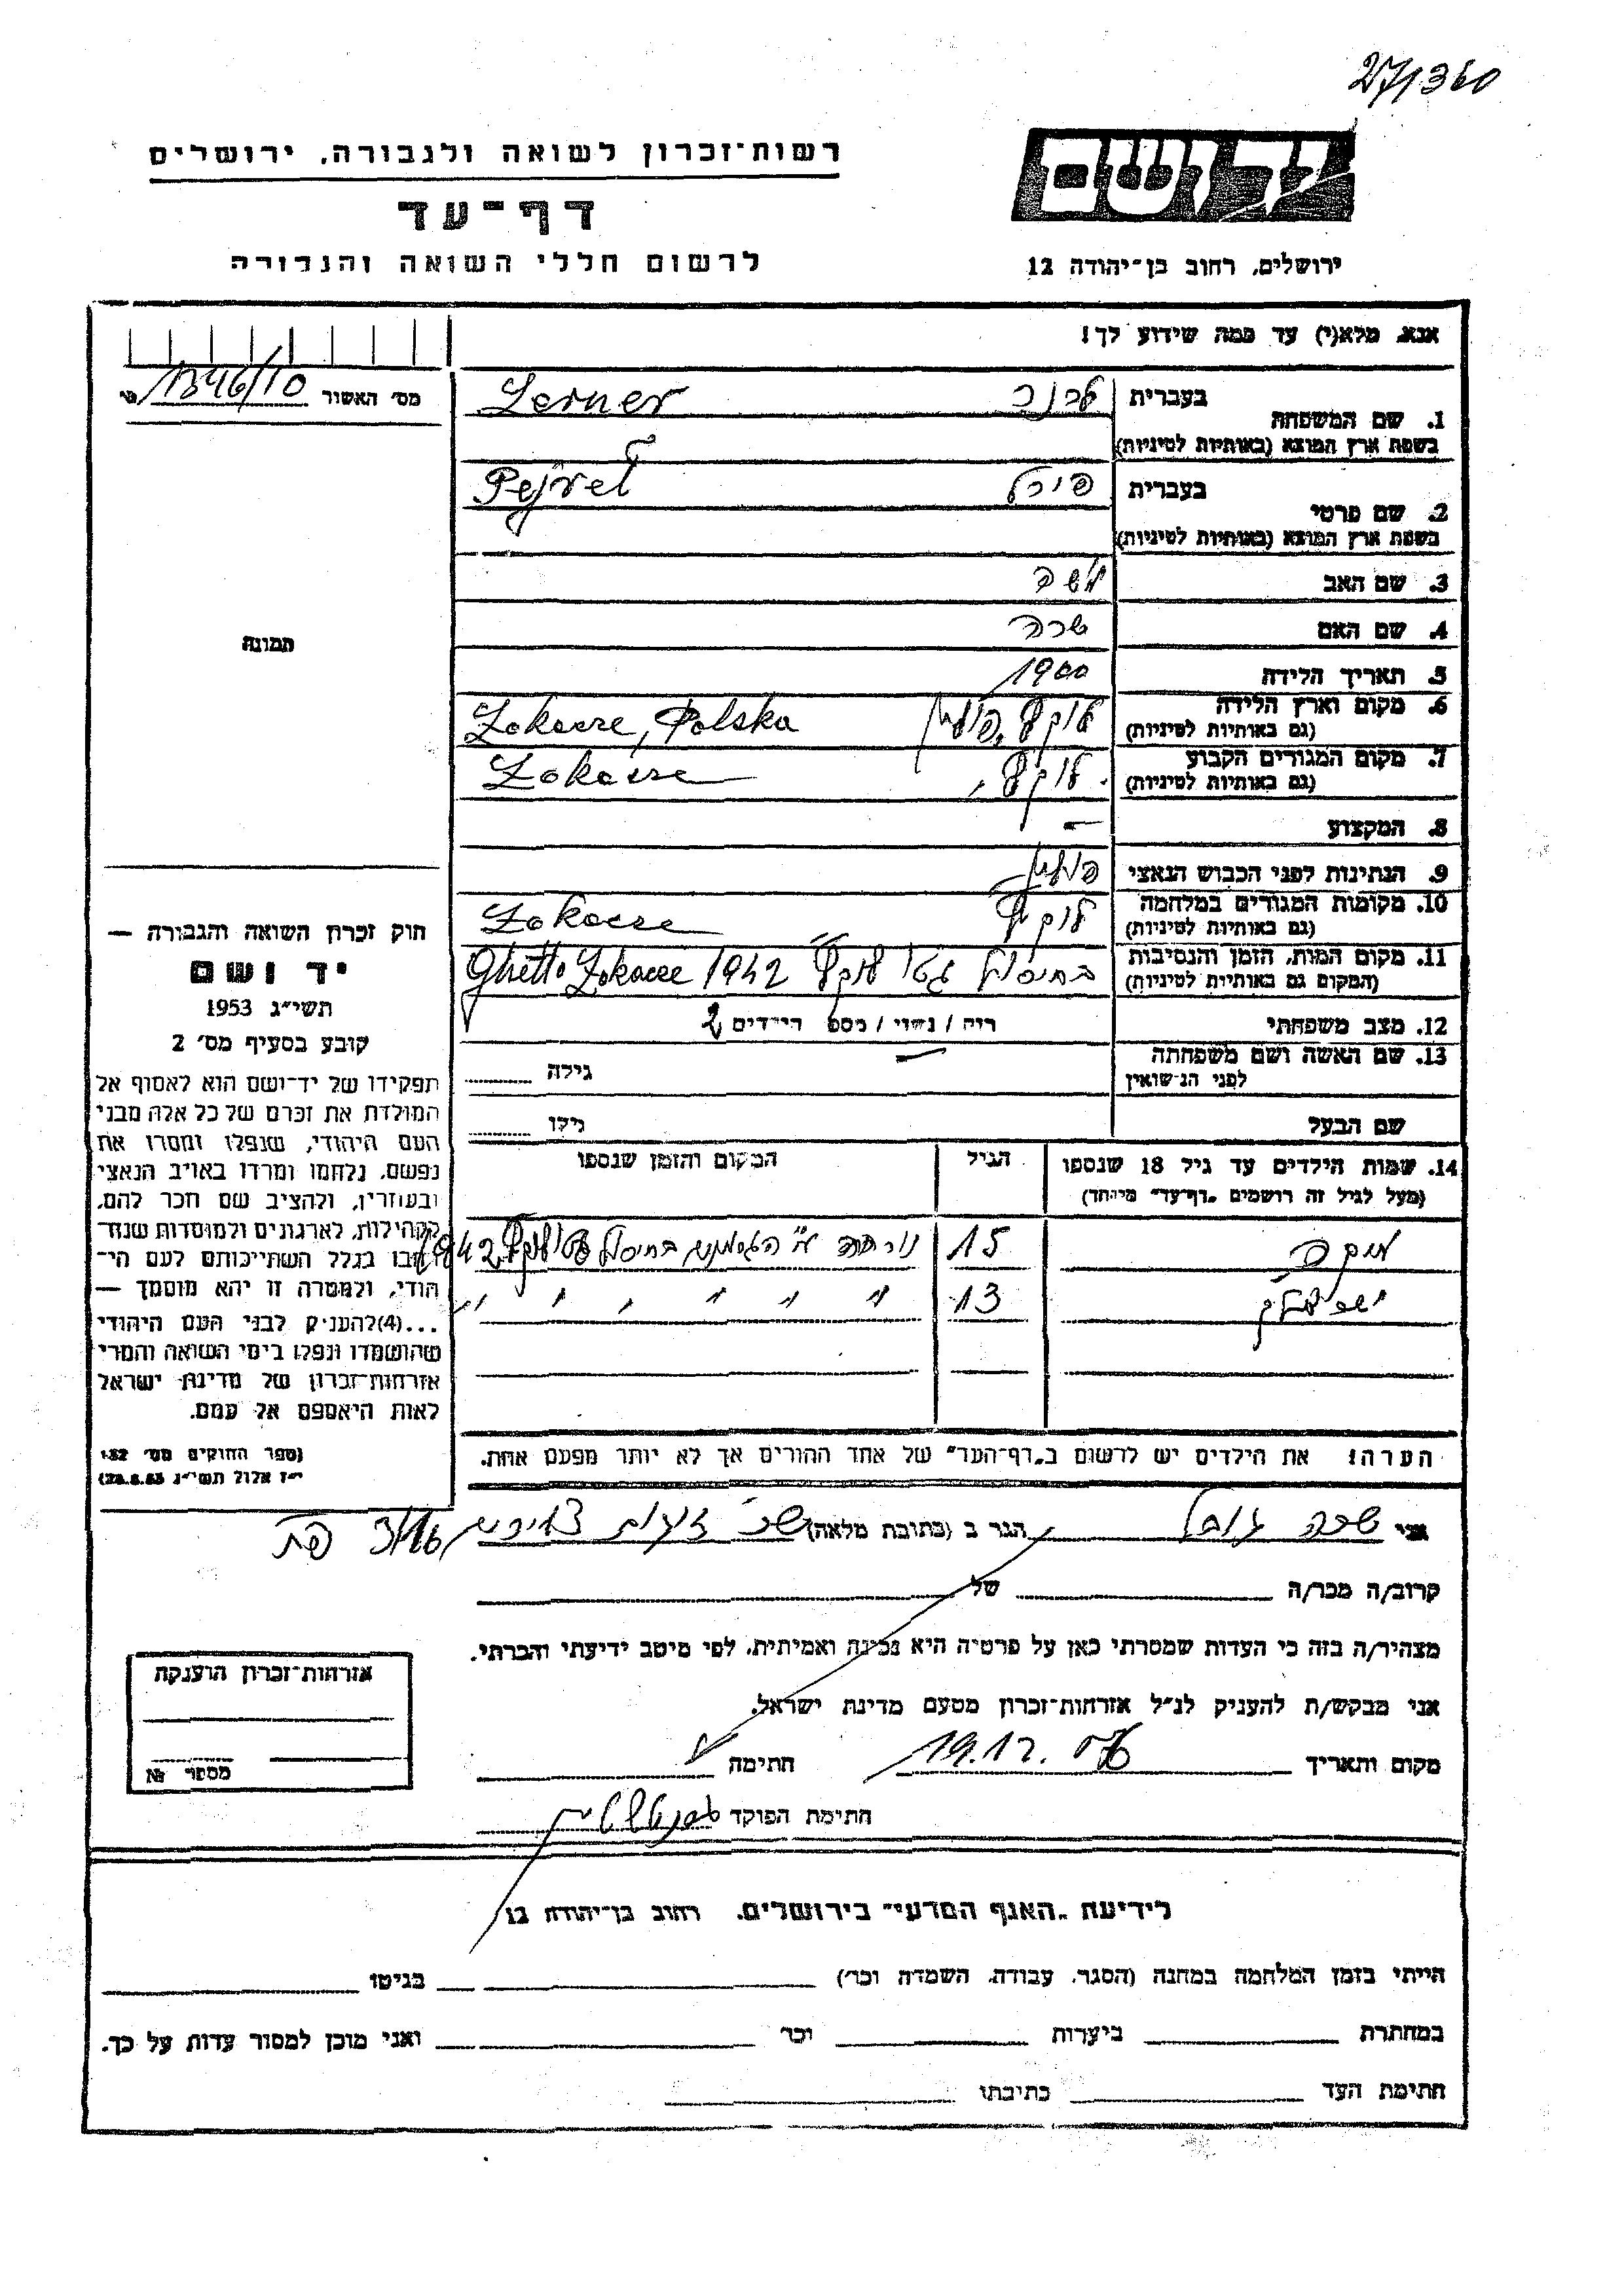 27/360
יד ושם
רשות־זכרון לשואה ולגבורה, ירושלים
דף־עד
ירושלים, רחוב בן־יהודה 12
לרשום חללי השואה והגבורה
אנא, מלא(י) עד כמה שידוע לך!
מס׳ האשור 1346/10
1. שם המשפחה
בעברית לרנר Lerner
בשפת ארץ המוצא (באותיות לטיניות)
2. שם פרטי
בעברית פירל Pejrel
בשפת ארץ המוצא (באותיות לטיניות)
3. שם האב משה
4. שם האם שרה
5. תאריך הלידה 1900
6. מקום וארץ הלידה
(גם באותיות לטיניות)
, פולין , Polska
7. מקום המגורים הקבוע
(גם באותיות לטיניות)
8. המקצוע —
9. הנתינות לפני הכבוש הנאצי פולין
10. מקומות המגורים במלחמה
(גם באותיות לטיניות)
11. מקום המות, הזמן והנסיבות
(המקום גם באותיות לטיניות)
בחיסול גטו Ghetto 1942
12. מצב משפחתי רוק / נשוי / מספר הילדים 2
13. שם האשה ושם משפחתה
לפני הנישואין — גילה
שם הבעל גילו
14. שמות הילדים עד גיל 18 שנספו
(מעל לגיל זה רושמים „דף־עד” מיוחד)
הגיל
המקום והזמן שנספו
15 ע״י הגרמנים בחיסול 1942
13 " " " " " "
הערה! את הילדים יש לרשום ב„דף־העד” של אחד ההורים אך לא יותר מפעם אחת.
תמונה
חוק זכרון השואה והגבורה —
יד ושם
תשי״ג 1953
קובע בסעיף מס׳ 2
תפקידו של יד־ושם הוא לאסוף אל
המולדת את זכרם של כל אלה מבני
העם היהודי, שנפלו ומסרו את
נפשם, נלחמו ומרדו באויב הנאצי
ובעוזריו, ולהציב שם וזכר להם,
לקהילות, לארגונים ולמוסדות שנח־
רבו בגלל השתייכותם לעם הי־
הודי, ולמטרה זו יהא מוסמך —
...(4) להעניק לבני העם היהודי
שהושמדו ונפלו בימי השואה והמרי
אזרחות־זכרון של מדינת ישראל
לאות היאספם אל עמם.
(ספר החוקים מס׳ 132
י״ז אלול תשי״ג 28.8.53)
אני שרה הגר ב (כתובת מלאה) 3/16
קרוב/ה מכר/ה של
מצהיר/ה בזה כי העדות שמסרתי כאן על פרטיה היא נכונה ואמיתית, לפי מיטב ידיעתי והכרתי.
אני מבקש/ת להעניק לנ״ל אזרחות־זכרון מטעם מדינת ישראל.
מקום ותאריך 19.12.56 חתימה
חתימת הפוקד
אזרחות־זכרון הוענקה
מספר №
לידיעת „האגף המדעי” בירושלים, רחוב בן־יהודה 12
הייתי בזמן המלחמה במחנה (הסגר, עבודה, השמדה וכו׳) בגיטו
במחתרת ביערות וכו׳ ואני מוכן למסור עדות על כך.
חתימת העד כתיבתו